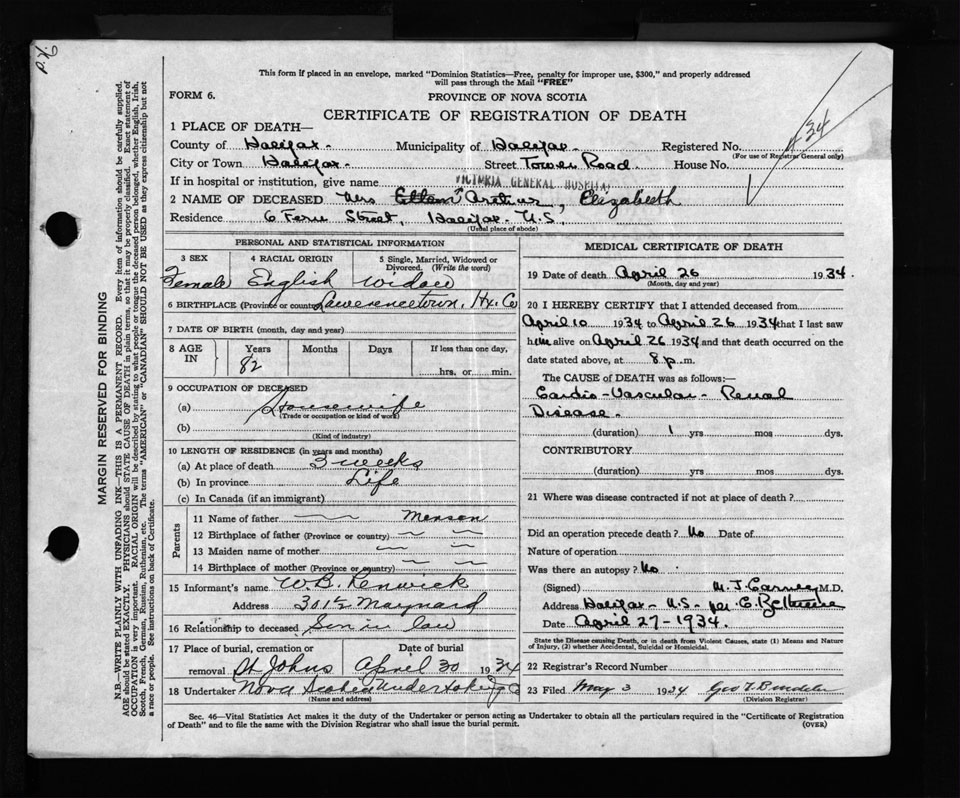 P.X.
This form if placed in an envelope, marked "Dominion Statistics—Free, penalty for improper use, $300," and properly addressed
will pass through the Mail "FREE"
FORM 6.
PROVINCE OF NOVA SCOTIA
CERTIFICATE OF REGISTRATION OF DEATH
434
1 PLACE OF DEATH—
County of Halifax. Municipality of Halifax. Registered No.
(For use of Registrar General only)
City or Town Halifax. Street Tower Road House No.
If in hospital or institution, give name VICTORIA GENERAL HOSPITAL
2 NAME OF DECEASED Mrs Ellen Arthur, Elizabeth
Residence 6 Fern Street, Halifax. N.S.,
(Usual place of abode)
PERSONAL AND STATISTICAL INFORMATION
3 SEX 4 RACIAL ORIGIN 5 Single, Married, Widowed or Divorced. (Write the word)
Female English Widow
6 BIRTHPLACE (Province or country) Lawrencetown, Hx. Co
7 DATE OF BIRTH (month, day and year)
8 AGE IN Years Months Days If less than one day,
82 hrs. or min.
9 OCCUPATION OF DECEASED
(a) Housewife
(Trade or occupation or kind of work)
(b)
(Kind of industry)
10 LENGTH OF RESIDENCE (in years and months)
(a) At place of death 3 weeks
(b) In province Life
(c) In Canada (if an immigrant)
Parents
11 Name of father Menson
12 Birthplace of father (Province or country)
13 Maiden name of mother
14 Birthplace of mother (Province or country)
15 Informant's name W.B. Renwick
Address 301½ Maynard
16 Relationship to deceased Son in law
17 Place of burial, cremation or removal Date of burial
St Johns April 30 1934
18 Undertaker Nova Scotia Undertaking Co
(Name and address)
MEDICAL CERTIFICATE OF DEATH
19 Date of death April 26 1934.
(Month, day and year)
20 I HEREBY CERTIFY that I attended deceased from
April 10 1934 to April 26 1934 that I last saw
him alive on April 26 1934 and that death occurred on the
date stated above, at 8 p. m.
The CAUSE of DEATH was as follows:—
Cardio-Vascular-Renal
Disease.
(duration) 1 yrs mos dys.
CONTRIBUTORY
(duration) yrs mos dys.
21 Where was disease contracted if not at place of death?
Did an operation precede death? No Date of
Nature of operation
Was there an autopsy? No
(Signed) M. J. Carney M.D.
Address Halifax - N.S. per E.
Date April 27-1934.
State the Disease causing Death, or in death from Violent Causes, state (1) Means and Nature
of Injury, (2) whether Accidental, Suicidal or Homicidal.
22 Registrar's Record Number
23 Filed May 3 1934 Geo
(Division Registrar)
Sec. 46—Vital Statistics Act makes it the duty of the Undertaker or person acting as Undertaker to obtain all the particulars required in the "Certificate of Registration
of Death" and to file the same with the Division Registrar who shall issue the burial permit. (OVER)
MARGIN RESERVED FOR BINDING
N.B.—WRITE PLAINLY WITH UNFADING INK—THIS IS A PERMANENT RECORD. Every item of information should be carefully supplied.
AGE should be stated EXACTLY. PHYSICIANS should STATE CAUSE OF DEATH in plain terms, so that it may be properly classified. Exact statement of
OCCUPATION is very important. RACIAL ORIGIN will be described by stating to what people or tongue the deceased person belonged, whether English, Irish,
Scotch, French, German, Russian, Ruthenian, etc. The terms "AMERICAN" or "CANADIAN" SHOULD NOT BE USED as they express citizenship but not
a race or people. See instructions on back of Certificate.